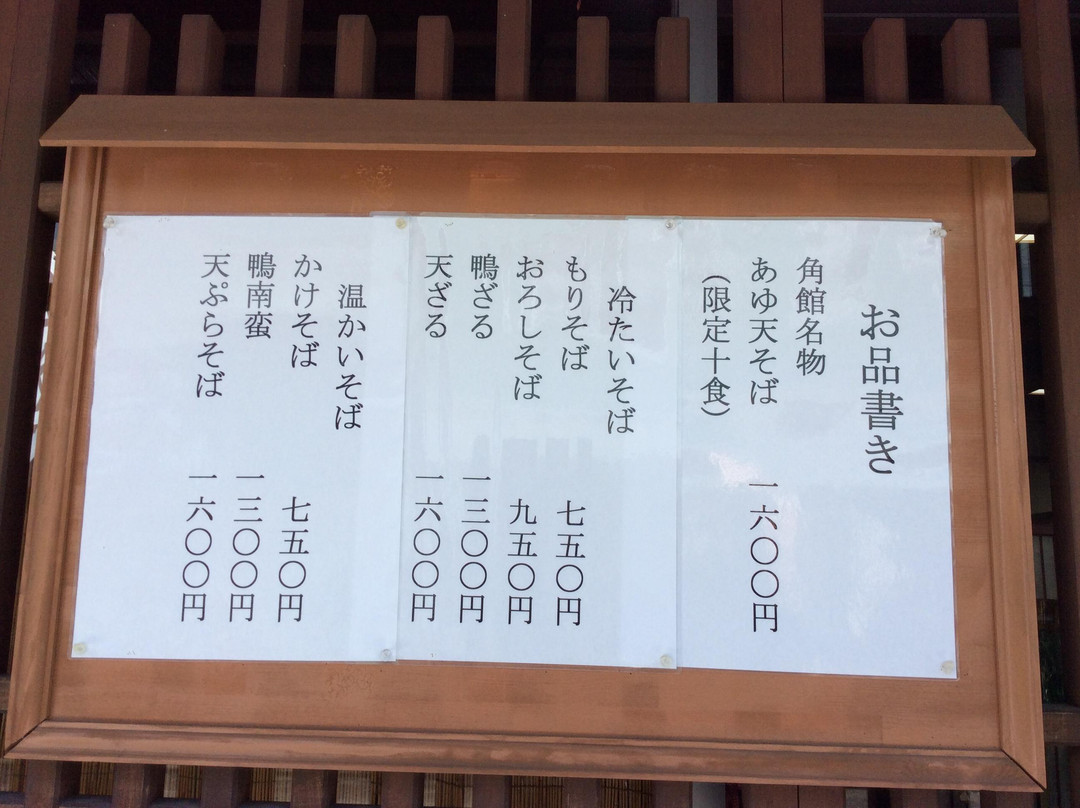 お品書き
角館名物
あゆ天そば 一六〇〇円
（限定十食）
冷たいそば
もりそば 七五〇円
おろしそば 九五〇円
鴨ざる 一三〇〇円
天ざる 一六〇〇円
温かいそば
かけそば 七五〇円
鴨南蛮 一三〇〇円
天ぷらそば 一六〇〇円